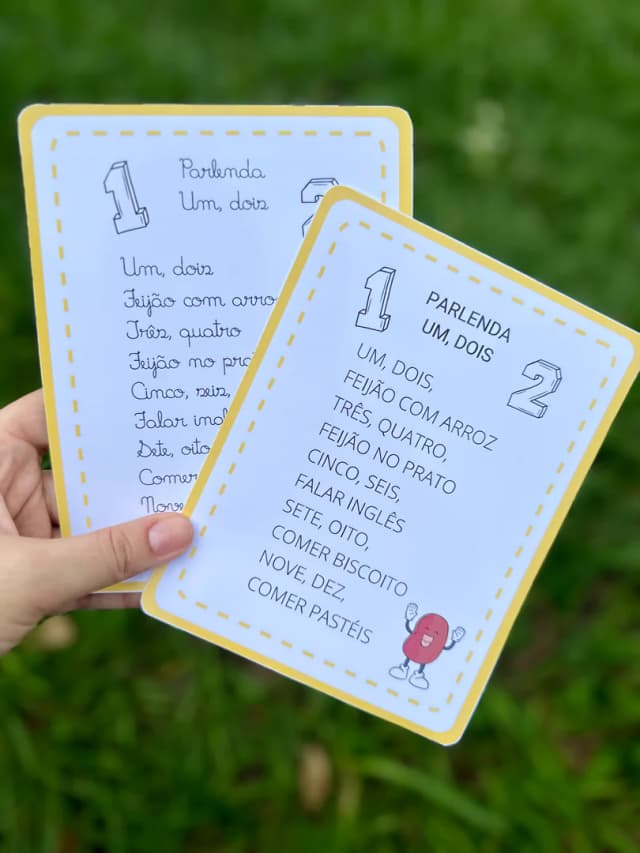 1
Parlenda
Um, dois
2
Um, dois
Feijão com arro
Três, quatro
Feijão no pra
Cinco, seis,
Falar ingl
Sete, oito
Comer
Nove
1
PARLENDA
UM, DOIS
2
UM, DOIS,
FEIJÃO COM ARROZ
TRÊS, QUATRO,
FEIJÃO NO PRATO
CINCO, SEIS,
FALAR INGLÊS
SETE, OITO,
COMER BISCOITO
NOVE, DEZ,
COMER PASTÉIS